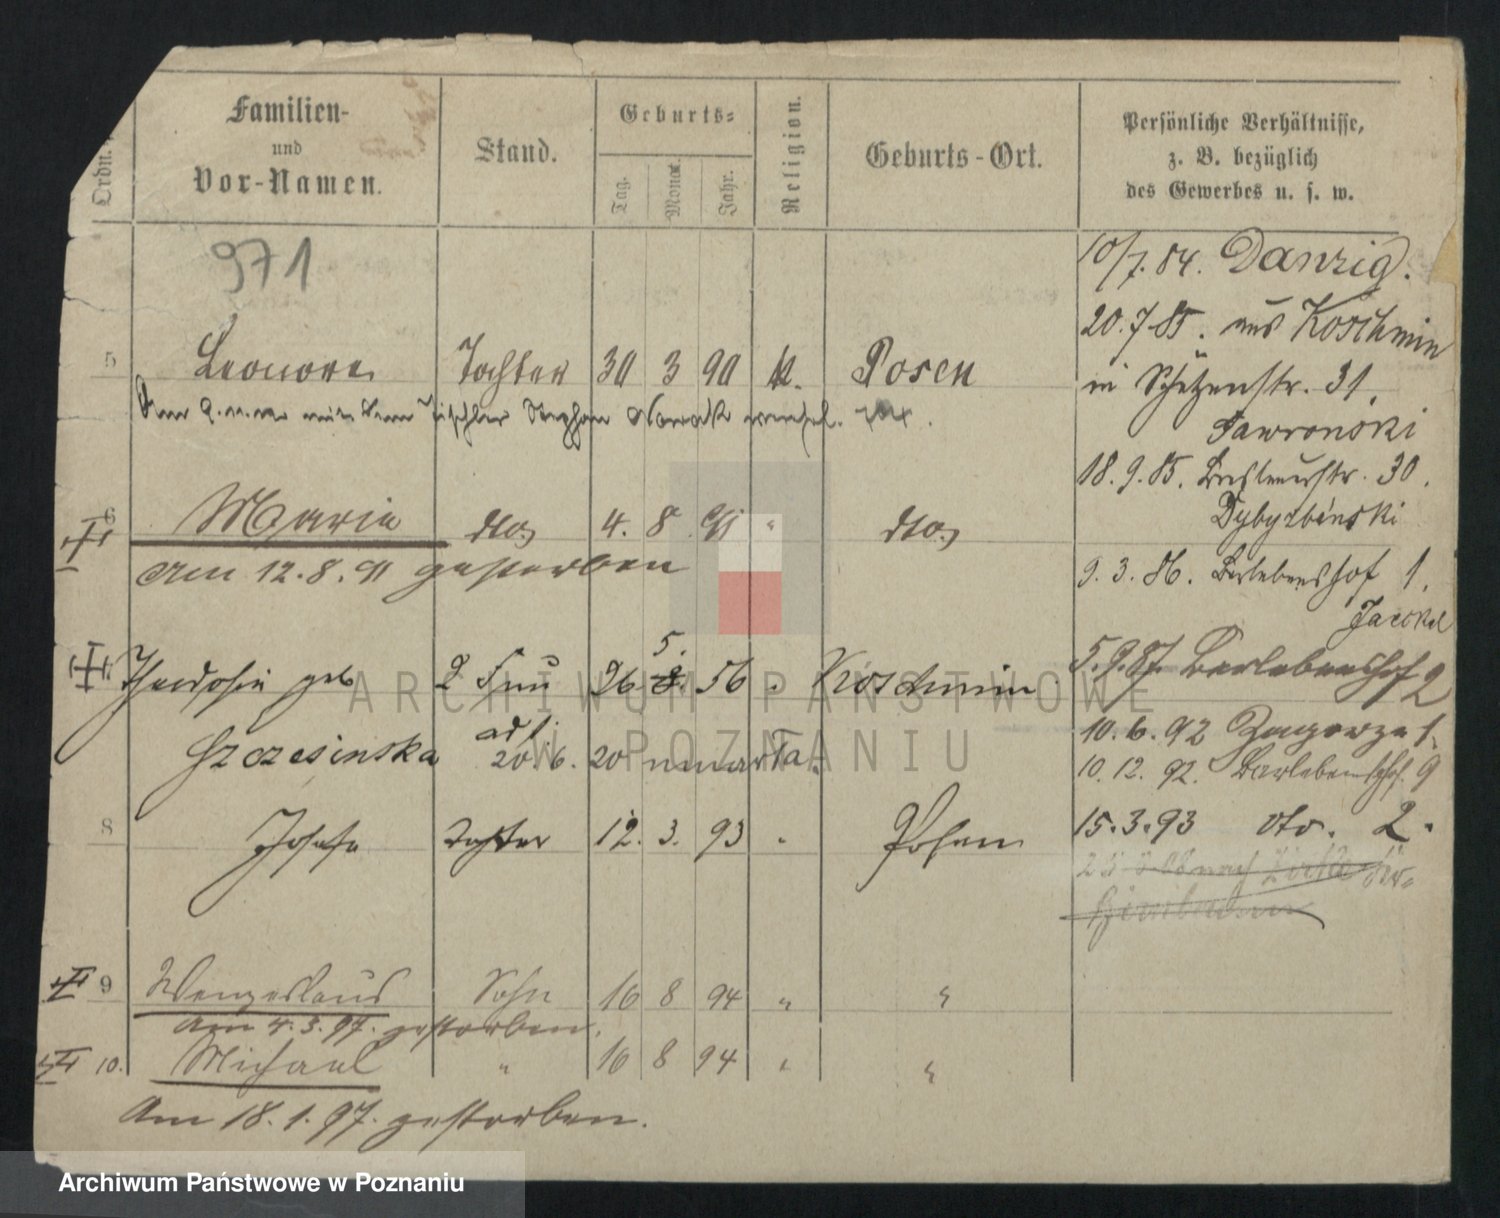 Ordn.
Familien-
und
Vor-Namen.
Stand.
Geburts-
Tag.
Monat.
Jahr.
Religion.
Geburts-Ort.
Persönliche Verhältnisse,
z. B. bezüglich
des Gewerbes u. s. w.
971
10/7. 84. Danzig.
20. 7 85. aus Koschmin
5 Leonore Tochter 30 3 90 k. Posen
in Schützenstr. 31.
mit dem Tischler Stephan Nowak
Gawronski
18. 9. 85. 30.
6 Marie dto 4. 8 91 " dto
Dybyzbinski
am 12. 8. 91 gestorben
9. 3. 86. Berlebenshof 1.
Jaeckel
5. 9. 87. Berlebenshof 2
Theodosia geb 2 Frau 26 5. 8. 56 " Koschmin
Szczesinska ad 1. 20. 6. 20
10. 6. 92 Zagorze 1.
10. 12. 92. Berlebenshof. 9
8 Josefa Tochter 12. 3. 93 " Posen
15. 3. 93 dto. 2.
9 Wenzeslaus Sohn 16 8 94 " "
am 4. 3. 97. gestorben.
10. Michael " 16 8 94 " "
Am 18. 1. 97. gestorben.
ARCHIWUM PAŃSTWOWE
W POZNANIU
Archiwum Państwowe w Poznaniu